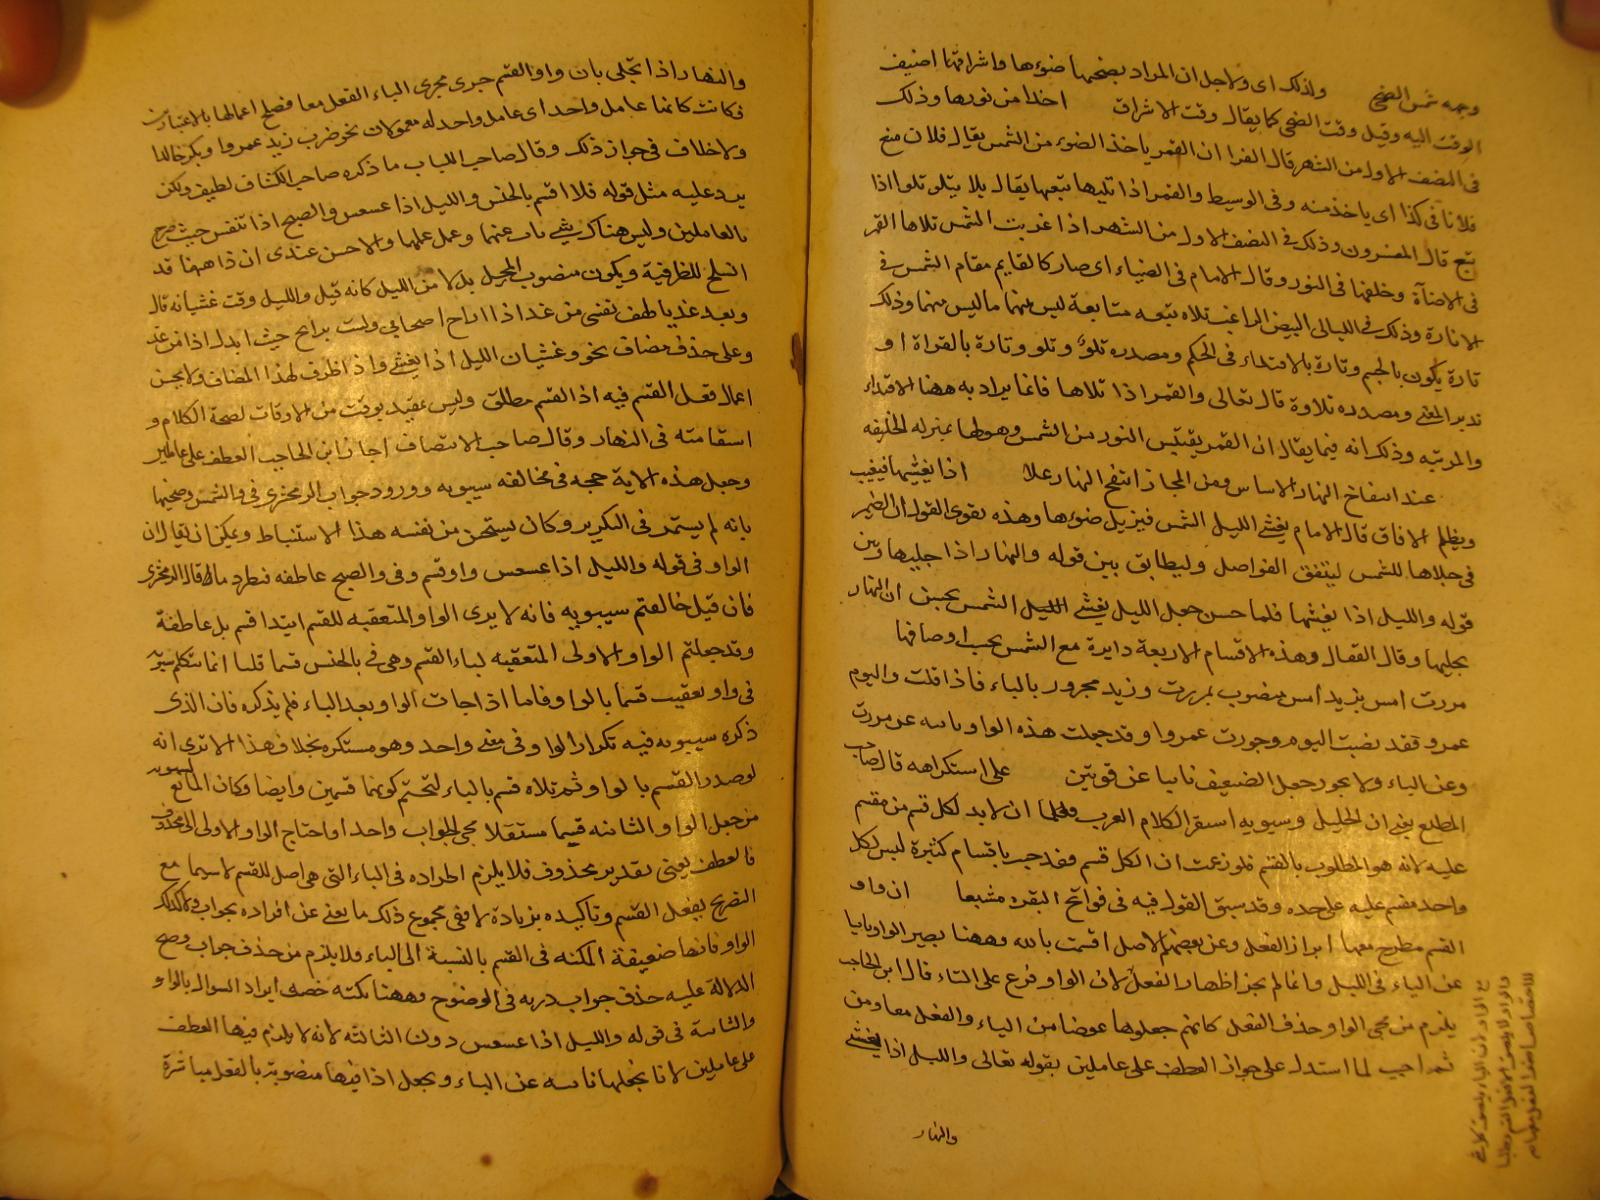 وجه شمس الضحى ولذلك اى ولاجل ان المراد بضحيها ضوءها واشراقها اضيف
الوقت اليه وقيل وقت الضحى كما يقال وقت الاشراق اخذا من نورها وذلك
فى النصف الاول من الشهر قال الفرا ان القمر ياخذ الضوء من الشمس يقال فلان منع
فلانا فى كذا اى ياخذ منه وفى الوسيط والقمر اذا تليها تبعها يقال تلا يتلو تلوا اذا
تبع قال المفسرون وذلك فى النصف الاول من الشهر اذا غربت الشمس تلاها القمر
فى الاضآة وخلفها فى النور وقال الامام فى الضياء اى صار كالقايم مقام الشمس فى
الانارة وذلك فى الليالى البيض الراغب تلاه تبعه متابعة ليس بينهما ما ليس منهما وذلك
تارة يكون بالجسم وتارة بالاقتداء فى الحكم ومصدره تلوّ وتلو وتارة بالقراة او
تدبر المعنى ومصدره تلاوة قال تعالى والقمر اذا تلاها فانما يراد به ههنا الاقتداء
والمرتبه وذلك انه فيما يقال ان القمر يقتبس النور من الشمس وهو لها بمنزله الخليفه
عند انتفاخ النهار الاساس ومن المجاز انتفخ النهار علا اذا يغشيها فيغيب
ويظلم الافاق قال الامام يغشى الليل الشمس فيزيل ضوءها وهذه تقوى القول ان الضمير
فى جلاها للشمس ليتفق الفواصل وليطابق بين قوله والنهار اذا جليها وبين
قوله والليل اذا يغشيها فلما حسن جعل الليل يغشى الليل الشمس بحسن ان النهار
يجليها وقال القفال وهذه الاقسام الاربعة دايرة مع الشمس بحسب اوصافها
مررت امس بزيد امس منصوب بمررت وزيد مجرور بالباء فاذا قلت واليوم
عمرو فقد نصبت اليوم وجررت عمروا وقد جعلت هذه الواو نايبه عن مررت
وعن الباء ولا يجوز جعل الضعيف نايبا عن قويتين على استكراهه قال صاحب
المطلع يعنى ان الخليل وسيبويه استقرا الكلام العرب فعلما ان لابد لكل قسم من مقسم
عليه لانه هو المطلوب بالقسم فلو زعمت ان الكل قسم فقد جيت باقسام كثيرة ليس لكل
واحد مقسم عليه على حده وقد سبق القول فيه فى فواتح البقره مشبعا ان واو
القسم مطرح معها ابراز الفعل وعن بعضهم الاصل اقسمت بالله وههنا يصير الواو نايبا
عن الباء فى الليل وانما لم يجز اظهار الفعل لان الواو فرع على التاء قال ابن الحاجب
يلزم من مجى الواو حذف الفعل كانهم جعلوها عوضا من الباء والفعل معا ومن
ثم اجيب لما استدل على جواز العطف على عاملين بقوله تعالى والليل اذا يغشى
والنهار
والنهار اذا تجلى بان واو القسم جرى مجرى الباء الفعل معا فصلح اعمالها بالاعتبارين
فكانت كانها عامل واحد اى عامل واحد له معمولان نحو ضرب زيد عمروا وبكر خالدا
ولا خلاف فى جواز ذلك وقال صاحب اللباب ما ذكره صاحب الكشاف لطيف ولكن
يرد عليه مثل قوله فلا اقسم بالخنس والليل اذا عسعس والصبح اذا تنفس حيث صرح
بالعاملين وليس هناك شئ ناب عنهما وعمل عملهما والاحسن عندى ان ذا ههنا قد
انسلخ للظرفية ويكون منصوب المحل بدلا من الليل كانه قيل والليل وقت غشيانه قال
وبعد غد يا لهف نفسى من غد اذا راح اصحابى ولست برايح حيث ابدل اذا من غد
وعلى حذف مضاف نحو وغشيان الليل اذا يغشى واذ اظرف لهذا المضاف ولا يحسن
اعمال فعل القسم فيه اذ القسم مطلق وليس بمقيد بوقت من الاوقات لصحة الكلام و
استقامته فى النهار وقال صاحب الانتصاف اجاز ابن الحاجب العطف على عاملين
وجعل هذه الاية حجه فى مخالفته سيبويه وورود جواب الزمخشرى فى والشمس وضحيها
بانه لم يستمر فى التكرير وكان يستحسن من نفسه هذا الاستنباط ويمكن ان يقال ان
الواو فى قوله والليل اذا عسعس واو قسم وفى والصبح عاطفه فيطرد ما قال الزمخشرى
فان قيل خالفتم سيبويه فانه لا يرى الواو المتعقبه للقسم ابتدا قسم بل عاطفة
وقد جعلتم الواو الاولى المتعقبه لباء القسم وهى فى بالخنس قسما قلنا انما تكلم سيبويه
فى واو تعقبت قسما بالواو فاما اذا جات الواو بعد الباء فلم يذكره فان الذى
ذكره سيبويه فيه تكرار الواو فى معنى واحد وهو مستكره بخلاف هذا الا ترى انه
لو صدر القسم بالواو ثم تلاه قسم بالباء لتحتم كونهما قسمين وايضا وكان المانع لسيبويه
من جعل الواو الثانيه قسما مستقلا مجى الجواب واحدا واحتاج الواو الاولى الى محذوف
فالعطف يغنى بتقدير محذوف فلا يلزم اطراده فى الباء التى هى اصل للقسم لا سيما مع
التصريح بفعل القسم وتاكيده بزيادة لا ففى مجموع ذلك ما يغنى عن افراده بجواب ولا كذلك
الواو فانها ضعيفة المكنه فى القسم بالنسبة الى الباء ولا يلزم من حذف جواب وضح
الدلالة عليه حذف جواب دونه فى الوضوح وههنا نكتة خص ايراد السوال بالواو
والثانية فى قوله والليل اذا عسعس دون الثالثه لانه لا يلزم فيها العطف
على عاملين لانا نجعلها نايبه عن الباء ونجعل اذا فيها منصوبة بالفعل مباشرة